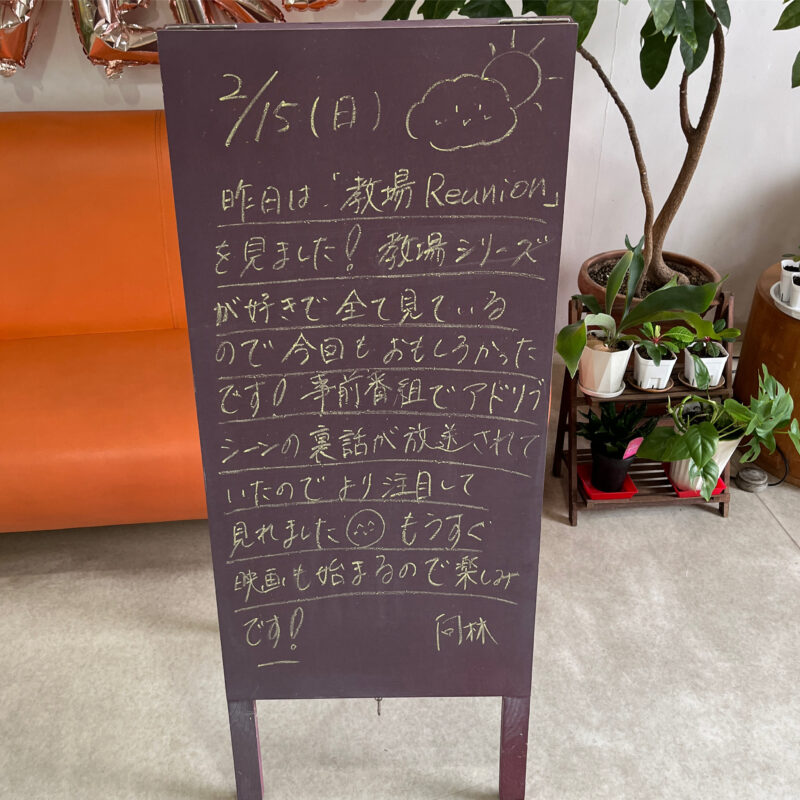 2/15(日)
昨日は「教場 Reunion」
を見ました! 教場シリーズ
が好きで全て見ている
ので今回もおもしろかった
です! 事前番組でアドリブ
シーンの裏話が放送されて
いたのでより注目して
見れました もうすぐ
映画も始まるので楽しみ
です! 向林